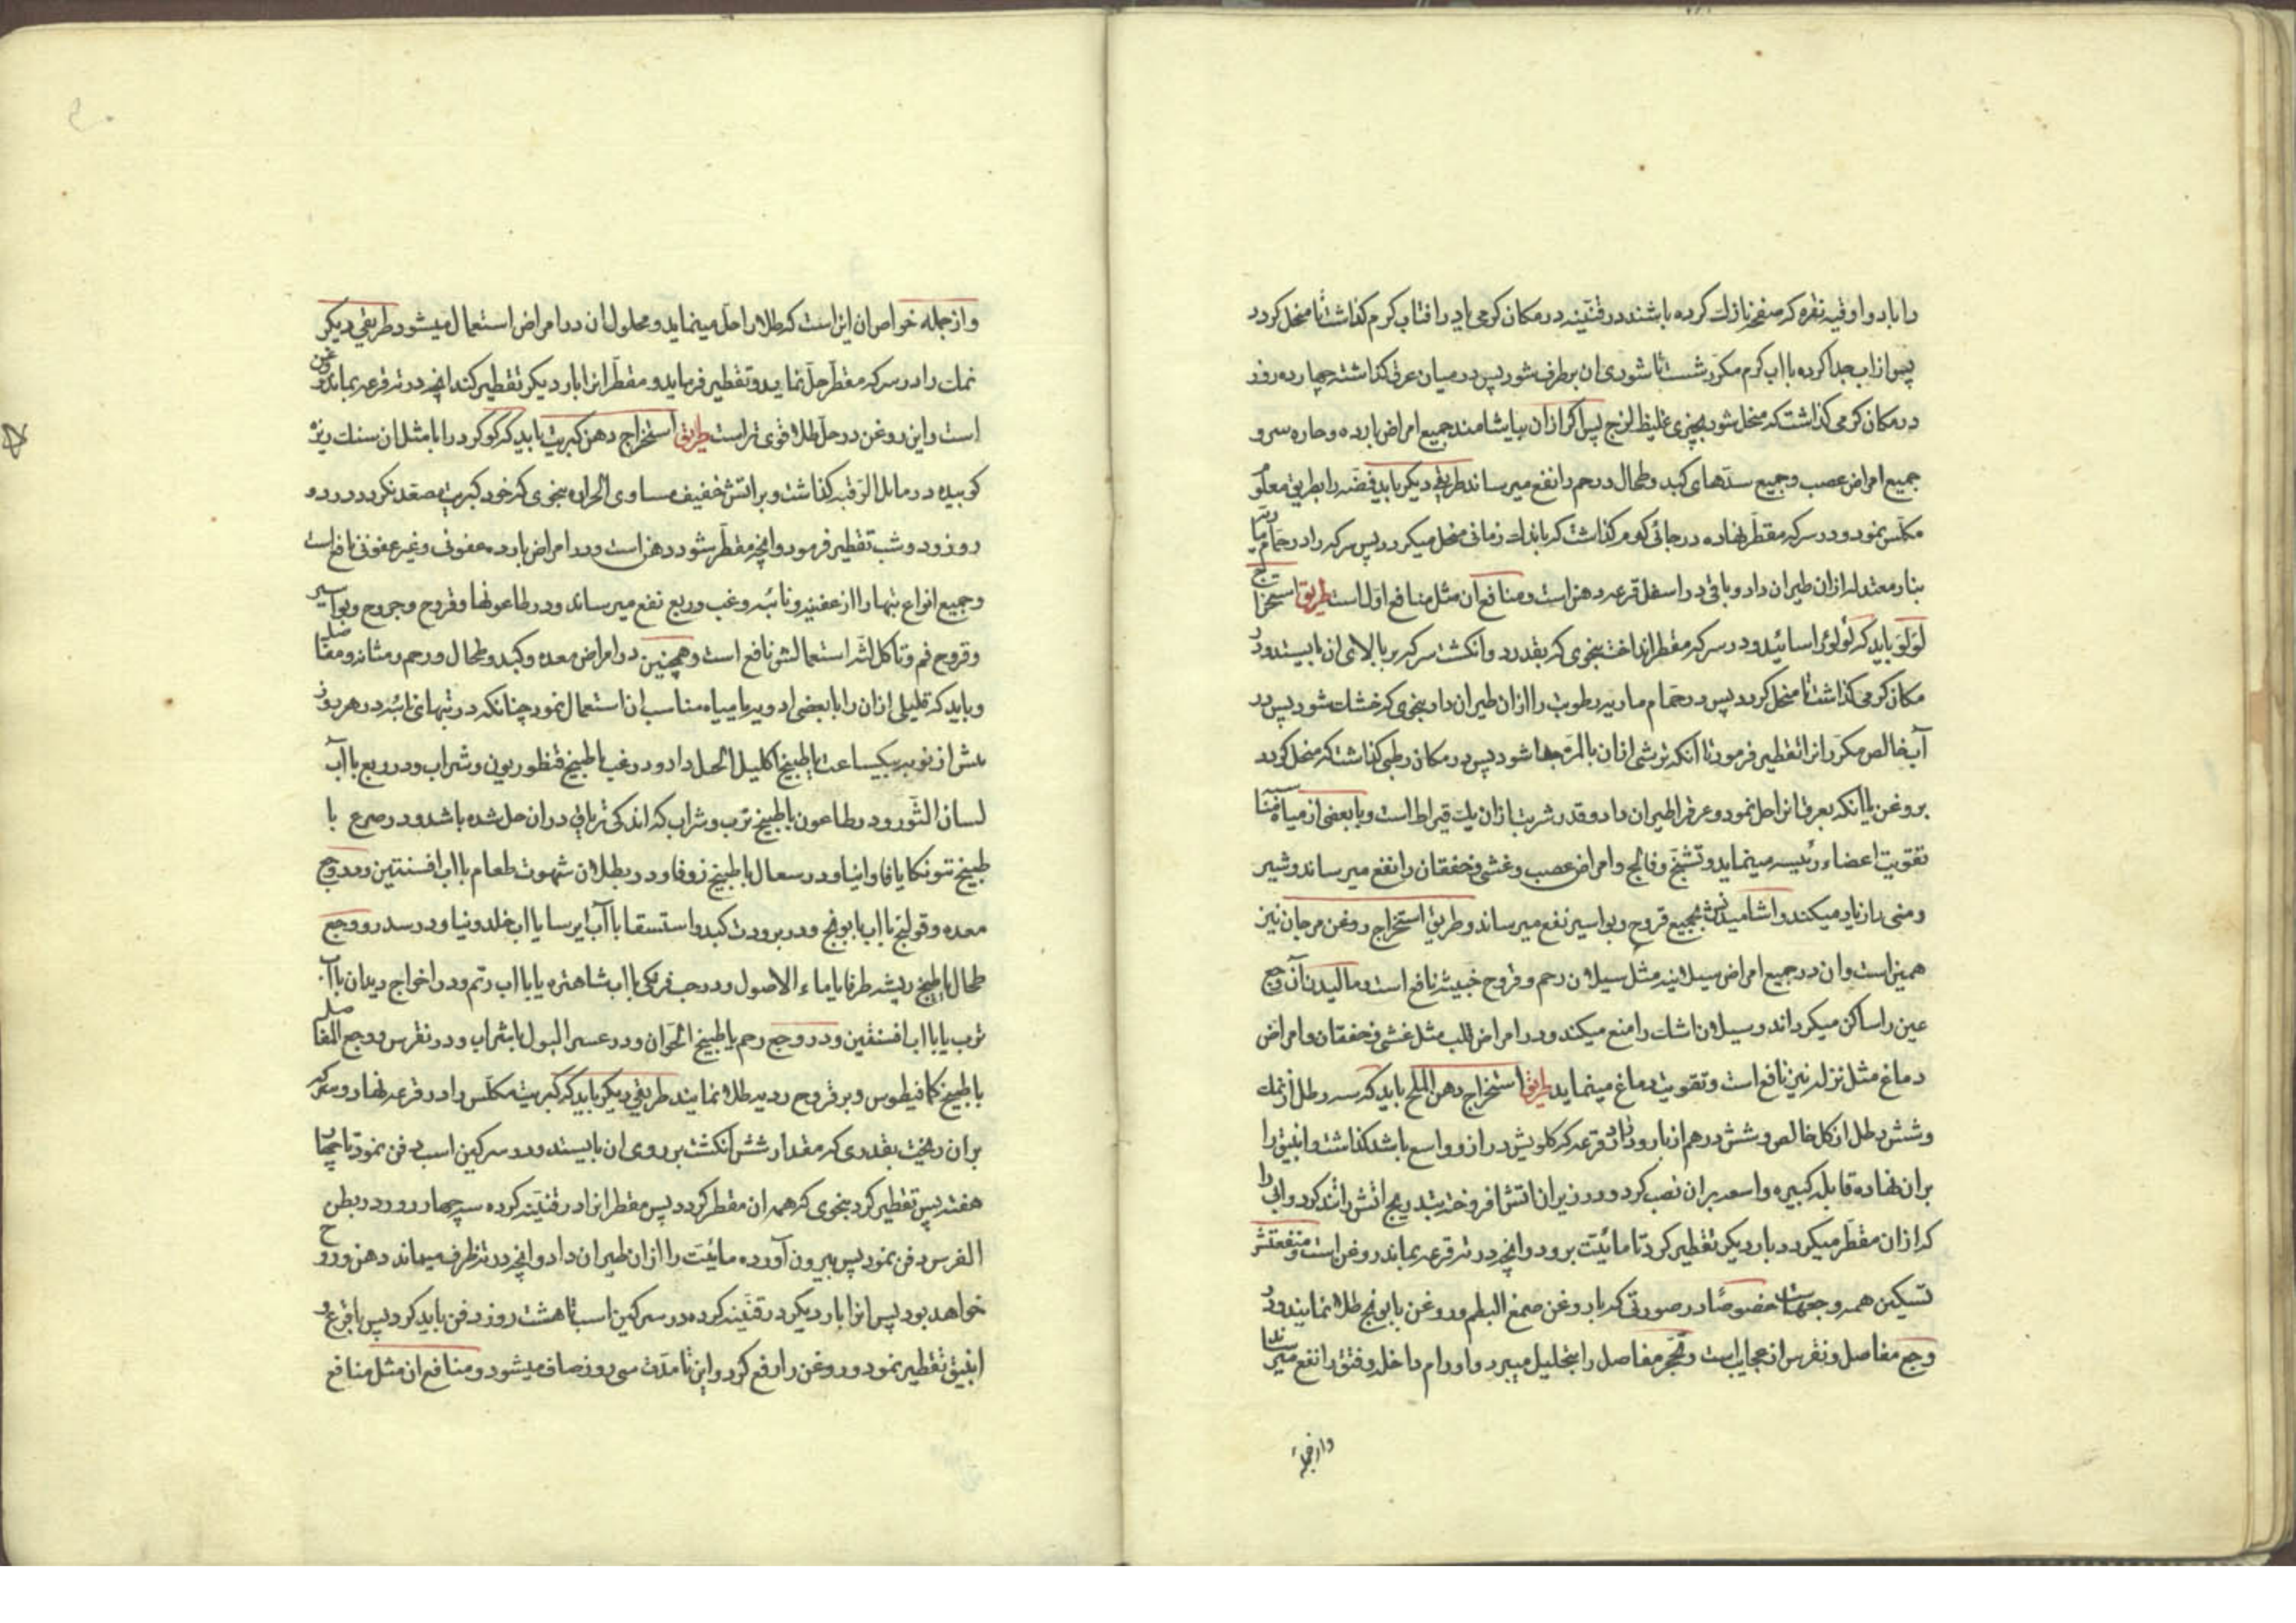 را با دو اوقیه نقره که صفحه نازک کرده باشند در قنینه در مکان کرمی یا در افتاب کرم کذاشت تا منحل کردد
پس از اب جدا کرده با اب کرم مکرر شست تا شوری ان برطرف شود پس در میان عرق کذاشته چهارده روز
در مکان کرمی کذاشت که منحل شود بچیزی غلیظ لزج پس اکر از ان بیاشامند جمیع امراض بارده و حاره سر و
جمیع امراض عصب و جمیع سدهای کبد و طحال و رحم را نفع میرساند طریقی دیکر باید فضه را بطریق معلوم
مکلس نمود و در سرکه مقطر نهاده در جائی کرم کذاشت که باندک زمانی منحل میکردد پس سرکه را در حمام ماریه
بنار معتدله از ان طیران داد و باقی در اسفل قرعه دهن است و منافع ان مثل منافع اول است طریق استخراج
لؤلؤ باید که لؤلؤ را سائیده و در سرکه مقطر انداخت بنحوی که بقدر دو انکشت سرکه بر بالای ان بایستد و در
مکان کرمی کذاشت تا منحل کردد پس در حمام ماریه رطوبت را از ان طیران داد بنحوی که خشک شود پس در
آب خالص مکرر انرا تقطیر فرمود تا آنکه ترشی از ان بالمره جدا شود پس در مکان رطبی کذاشت که منحل کردد
بروغن یا آنکه بعرق انرا حل نمود و عرق را طیران داد و قدر شربت از ان یک قیراط است و با بعضی از میاه مناسبه
تقویت اعضاء رئیسه مینماید و تشنج و فالج و امراض عصب و غشی و خفقان را نفع میرساند و شیر
و منی را زیاد میکند و اشامیدنش بجمیع قروح و بواسیر نفع میرساند و طریق استخراج روغن مرجان نیز
همین است و ان در جمیع امراض سیلانیه مثل سیلان رحم و قروح خبیثه نافع است و مالیدن آن وجع
عین را ساکن میکرداند و سیلان اشک را منع میکند و در امراض قلب مثل غشی و خفقان و امراض
دماغ مثل نزله نیز نافع است و تقویت دماغ مینماید طریق استخراج دهن الملح باید که سه رطل از نمک
و شش رطل از کل خالص و شش درهم از بارود را در قرعه که کلویش دراز و واسع باشد کذاشت و انبیق را
بر ان نهاده قابله کبیره واسعه بر ان نصب کرد و در زیر ان اتش افروخته بتدریج اتش را تند کرد و ابی را
که از ان مقطر میکردد بار دیکر تقطیر کرد تا مائیت برود و انچه در ته قرعه بماند روغن است و منفعتش
تسکین همه وجعهاست خصوصا در صورتی که با روغن صمغ البطم و روغن بابونج طلا نمایند و در
وجع مفاصل و نقرس از عجایب است و تحجر مفاصل را بتحلیل میبرد و اورام داخل و فتق را نفع میرساند
وازجمله
و از جمله خواص ان اینست که طلا را حل مینماید و محلول ان در امراض استعمال میشود طریقی دیکر
نمک را در سرکه مقطر حل نماید و تقطیر فرماید و مقطر انرا بار دیکر تقطیر کند انچه در ته قرعه بماند روغن
است و این روغن در حل طلا قوی تر است طریق استخراج دهن کبریت باید که کوکرد را با مثل ان سنک ریزه
کوبیده در مایل الرقبه کذاشت و بر اتش خفیف مساوی الحراره بنحوی که خود کبریت مصعد نکردد در دو
روز و دو شب تقطیر فرمود و انچه مقطر شود دهن است و در امراض بارده عفونی و غیر عفونی نافع است
و جمیع انواع تبها را از عفنیه و نائبه و غب و ربع نفع میرساند و در طاعونها و قروح و جروح و بواسیر
و قروح فم و تاکل لثه استعمالش نافع است و همچنین در امراض معده و کبد و طحال و رحم و مثانه و مفاصل
و باید که قلیلی از ان را با بعضی ادویه یا میاه مناسب ان استعمال نمود چنانکه در تبهای نائبه در هر روز
پیش از نوبه بیکساعت با طبیخ اکلیل الجبل داد و در غب با طبیخ قنطوریون و شراب و در ربع با آب
لسان الثور و در طاعون با طبیخ ترب و شراب که اندکی تریاق در ان حل شده باشد و در صرع با
طبیخ بتونکا یا فاوانیا و در سعال با طبیخ زوفا و در بطلان شهوت طعام با اب افسنتین و در وجع
معده و قولنج با اب بابونج و در برودت کبد و استسقا با آب ایرسا یا اب خلدونیا و در سدر و وجع
طحال با طبیخ ریشه طرفا یا ماء الاصول و در حب فرنکی با اب شاهتره یا با اب رتم و در اخراج دیدان با آب
ترب یا با اب افسنتین و در وجع رحم با طبیخ اقحوان و در عسر البول با شراب و در نقرس و وجع المفاصل
با طبیخ کمافیطوس و بر قروح ردیه طلا نمایند طریقی دیکر باید که کبریت مکلس را در قرعه نهاد و سرکه
بر ان ریخت بقدری که مقدار شش انکشت بر روی ان بایستد و در سرکین اسب دفن نمود تا چهار
هفته پس تقطیر کرد بنحوی که همه ان مقطر کردد پس مقطر انرا در قنینه کرده سه چهار روز در بطن
الفرس دفن نمود پس بیرون آورده مائیت را از ان طیران داد و انچه در ته ظرف میماند دهن و روح
خواهد بود پس انرا بار دیکر در قنینه کرده در سرکین اسب تا هشت روز دفن باید کرد پس با قرع و
انبیق تقطیر نمود و روغن را رفع کرد و این تا مدت سی روز صاف میشود و منافع ان مثل منافع